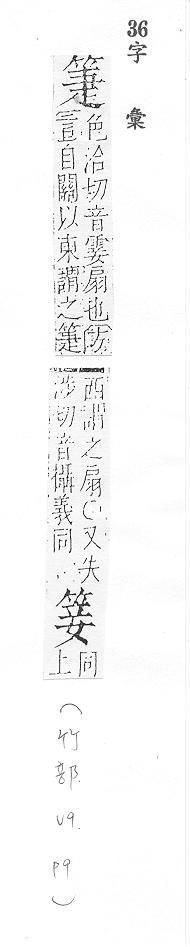 36
字彙
箑
色洽切音霎扇也
自關以東謂之箑
西謂之扇○又失
涉切音攝義同
同
上
(竹部. v9. p9)